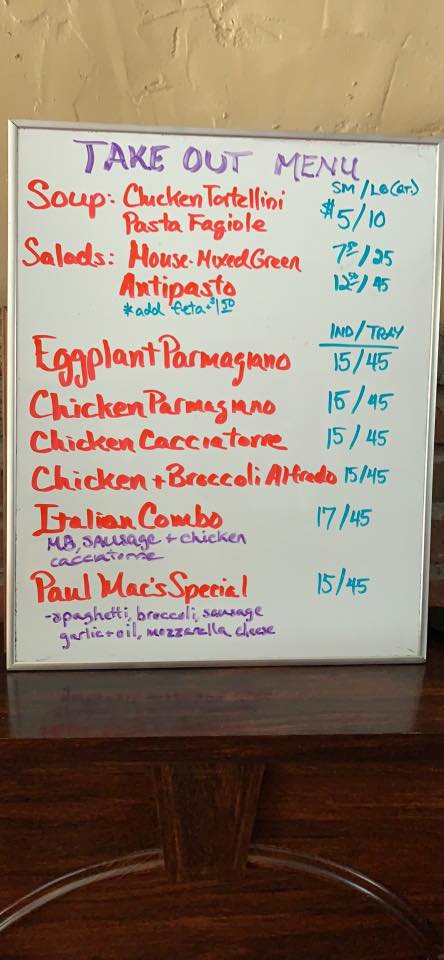 TAKE OUT MENU
SM / LG (QT.)
Soup: Chicken Tortellini
Pasta Fagiole $5/10
Salads: House-Mixed Green 7.50/25
Antipasto 12.50/45
*add feta + $1.50
IND/TRAY
Eggplant Parmagiano 15/45
Chicken Parmagiano 15/45
Chicken Cacciatorre 15/45
Chicken + Broccoli Alfredo 15/45
Italian Combo 17/45
MB, SAUSAGE + chicken
cacciatorre
Paul Mac's Special 15/45
-spaghetti, broccoli, sausage
garlic + oil, mozzarella cheese